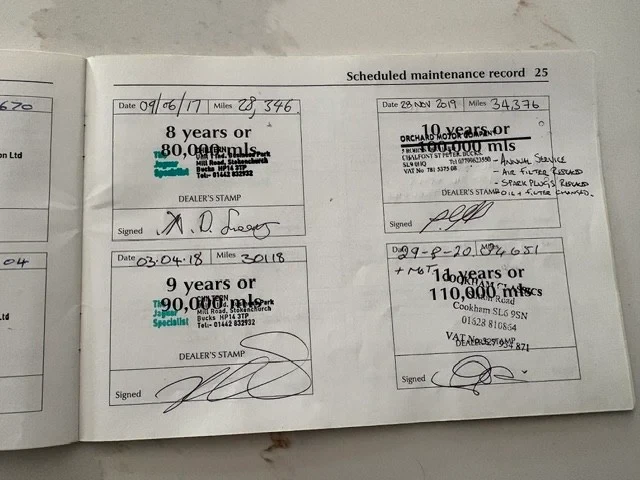 Scheduled maintenance record 25
670
on Ltd
04
Ltd
Date 09/06/17 Miles 28,346
8 years or
80,000 mls.
The
Jaguar
Specialist
Mill Road, Stokenchurch
Bucks HP14 3TP
Tel:- 01442 832932
DEALER'S STAMP
Signed
Date 28 NOV 2019 Miles 34,376
10 years or
100,000 mls.
ORCHARD MOTOR COMPANY
CHALFONT ST PETER, BUCKS
SL9 0HQ
VAT No
- ANNUAL SERVICE
- AIR FILTER REPLACED
- SPARK PLUGS REPLACED
- OIL + FILTER CHANGED.
DEALER'S STAMP
Signed
Date 03.04.18 Miles 30118
9 years or
90,000 mls.
The
Jaguar
Specialist
Mill Road, Stokenchurch
Bucks HP14 3TP
Tel:- 01442 832932
DEALER'S STAMP
Signed
Date 29-8-20 Miles
+ MOT
11 years or
110,000 mls
Road
Cookham SL6 9SN
01628 810864
VAT No.
DEALER'S STAMP
Signed